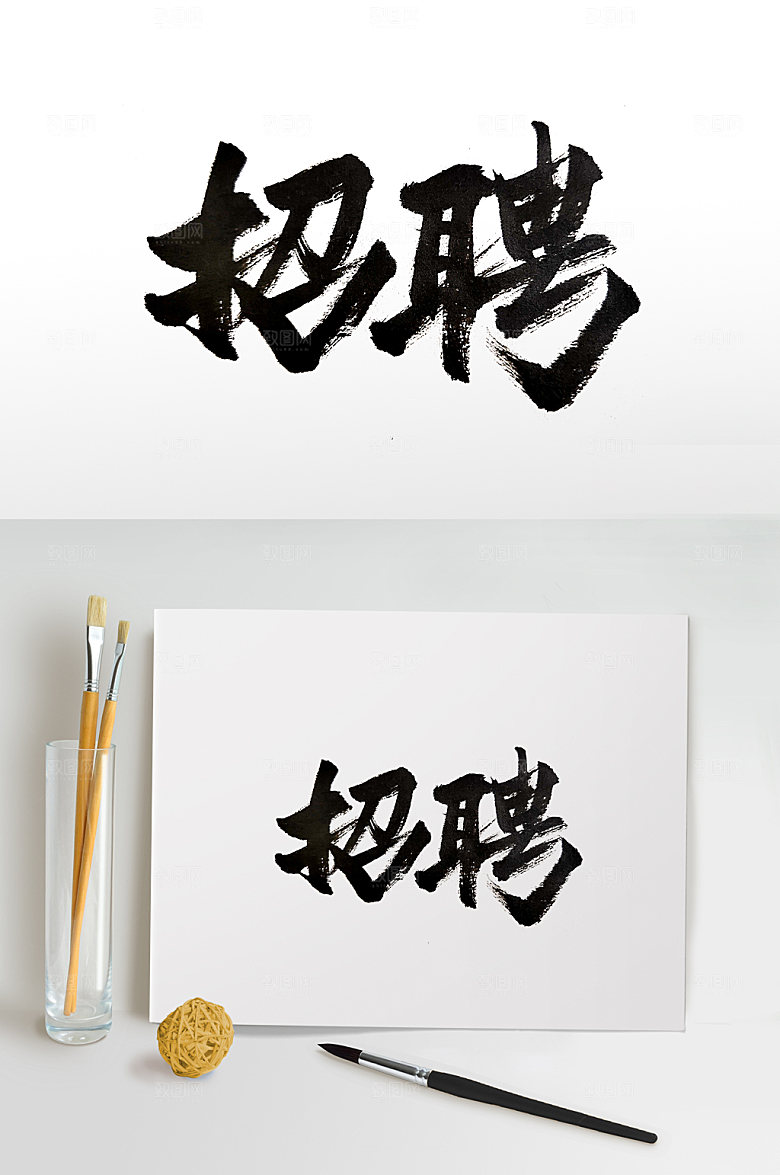 招聘
招聘